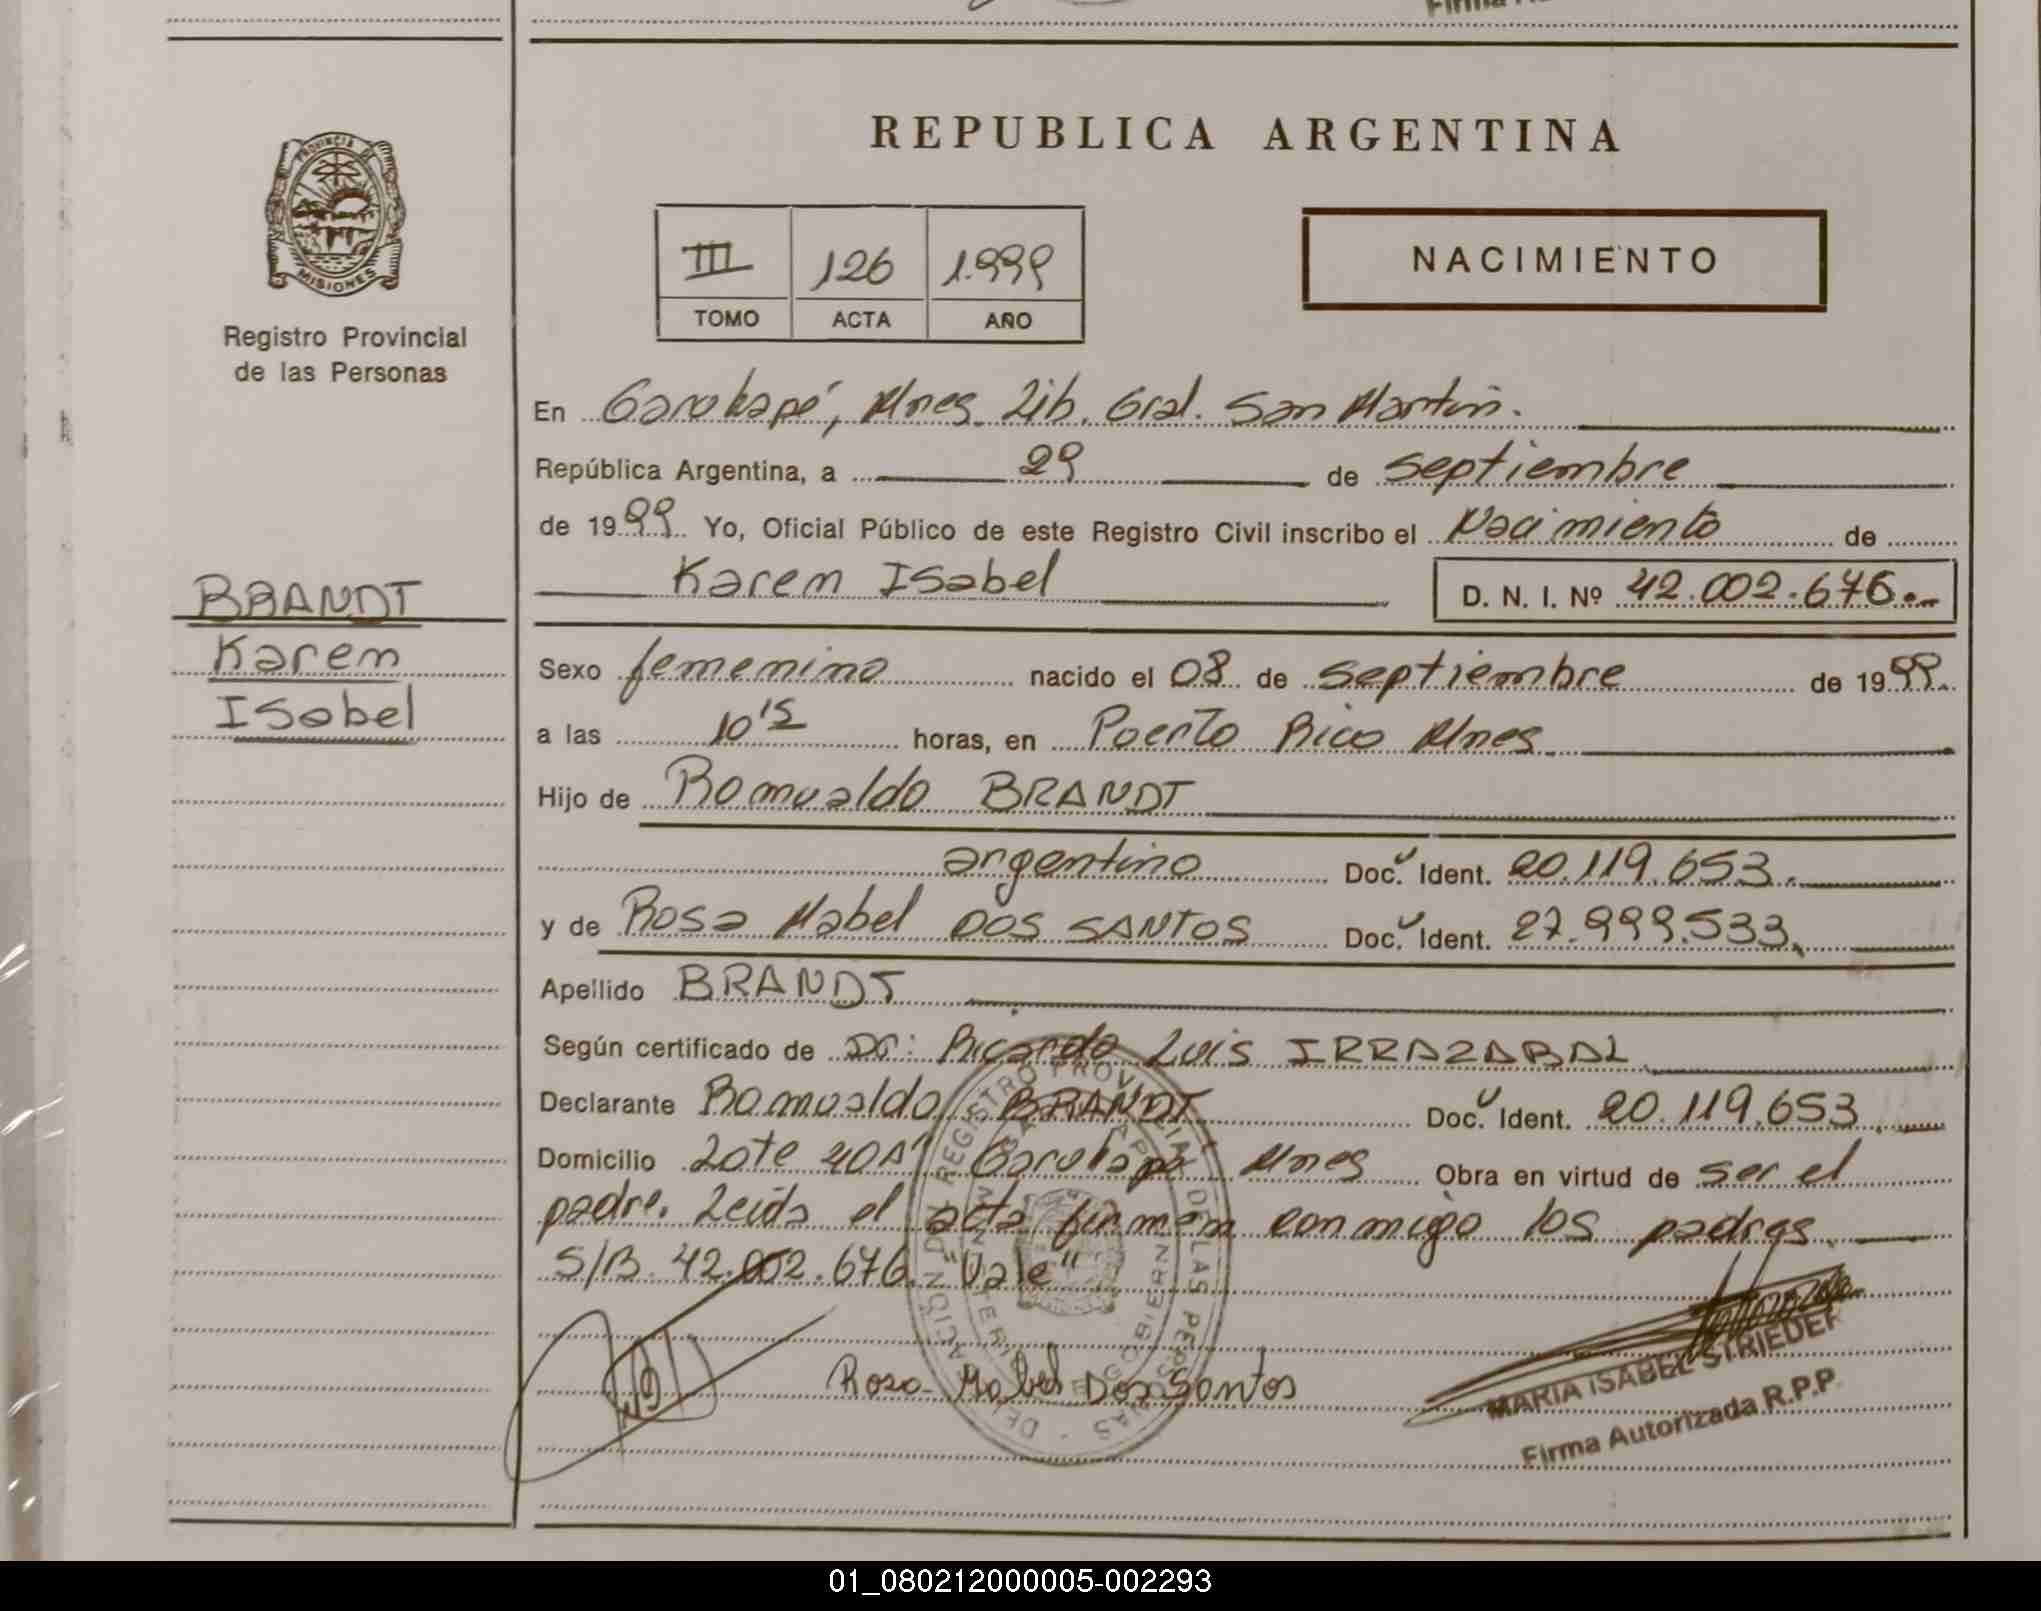 Firma
REPUBLICA ARGENTINA
PROVINCIA DE
MISIONES
Registro Provincial
de las Personas
III 126 1.999
TOMO ACTA AÑO
NACIMIENTO
En Garuhapé, Mnes. Lib. Gral. San Martin.
República Argentina, a 29 de septiembre
de 1999 Yo, Oficial Público de este Registro Civil inscribo el Nacimiento de
Karem Isabel D. N. I. Nº 42.002.676.-
BRANDT
Karem
Isabel
Sexo femenino nacido el 08 de septiembre de 1999.
a las 10 15 horas, en Puerto Rico Mnes.
Hijo de Romualdo BRANDT
argentino Doc. Ident. 20.119.653.
y de Rosa Mabel DOS SANTOS Doc. Ident. 27.999.533.
Apellido BRANDT
Según certificado de Dr: Ricardo Luis IRRAZABAL
Declarante Romualdo BRANDT Doc. Ident. 20.119.653.
Domicilio Lote 40A" Garuhapé Mnes Obra en virtud de ser el
padre. Leida el acta firman conmigo los padres.
S/B. 42.002.676. "Vale"
REGISTRO PROVINCIAL DE LAS PERSONAS
Rosa Mabel Dos Santos
MARIA ISABEL STRIEDER
Firma Autorizada R.P.P.
01_080212000005-002293